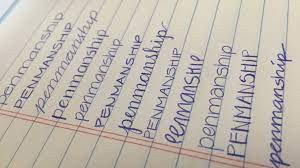 penmanship
PENMANSHIP
penmanship
penmanship
penmanship
penmanship
PENMANSHIP
penmanship
penmanship
PENMANSHIP
penmanship